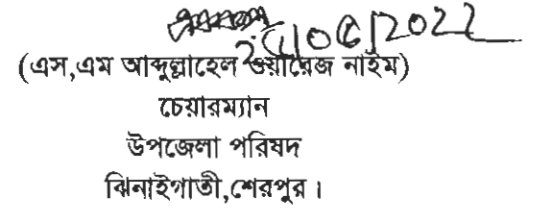 (এস,এম আব্দুল্লাহেল ওয়ারেজ নাইম)
চেয়ারম্যান
উপজেলা পরিষদ
ঝিনাইগাতী,শেরপুর।